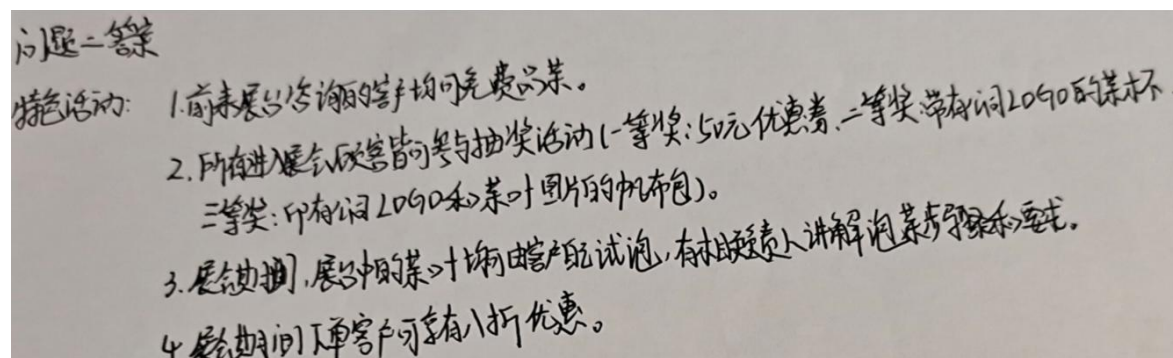 问题二答案
特色活动: 1.前来展台咨询的客户均可免费品茶。
2.所有进入展会顾客皆可参与抽奖活动(一等奖:50元优惠券、二等奖:带有公司LOGO的茶杯
三等奖:印有公司LOGO和茶叶图片的帆布包)。
3.展会期间,展台中的茶叶均可由客户自主试泡,有相关负责人讲解泡茶步骤和要求。
4.展会期间下单客户可享有八折优惠。